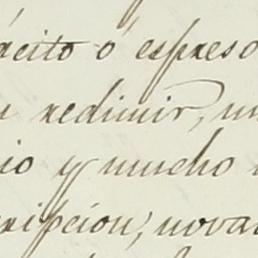 ácito ó espreso
redimir,
io y mucho
ripcion, nova